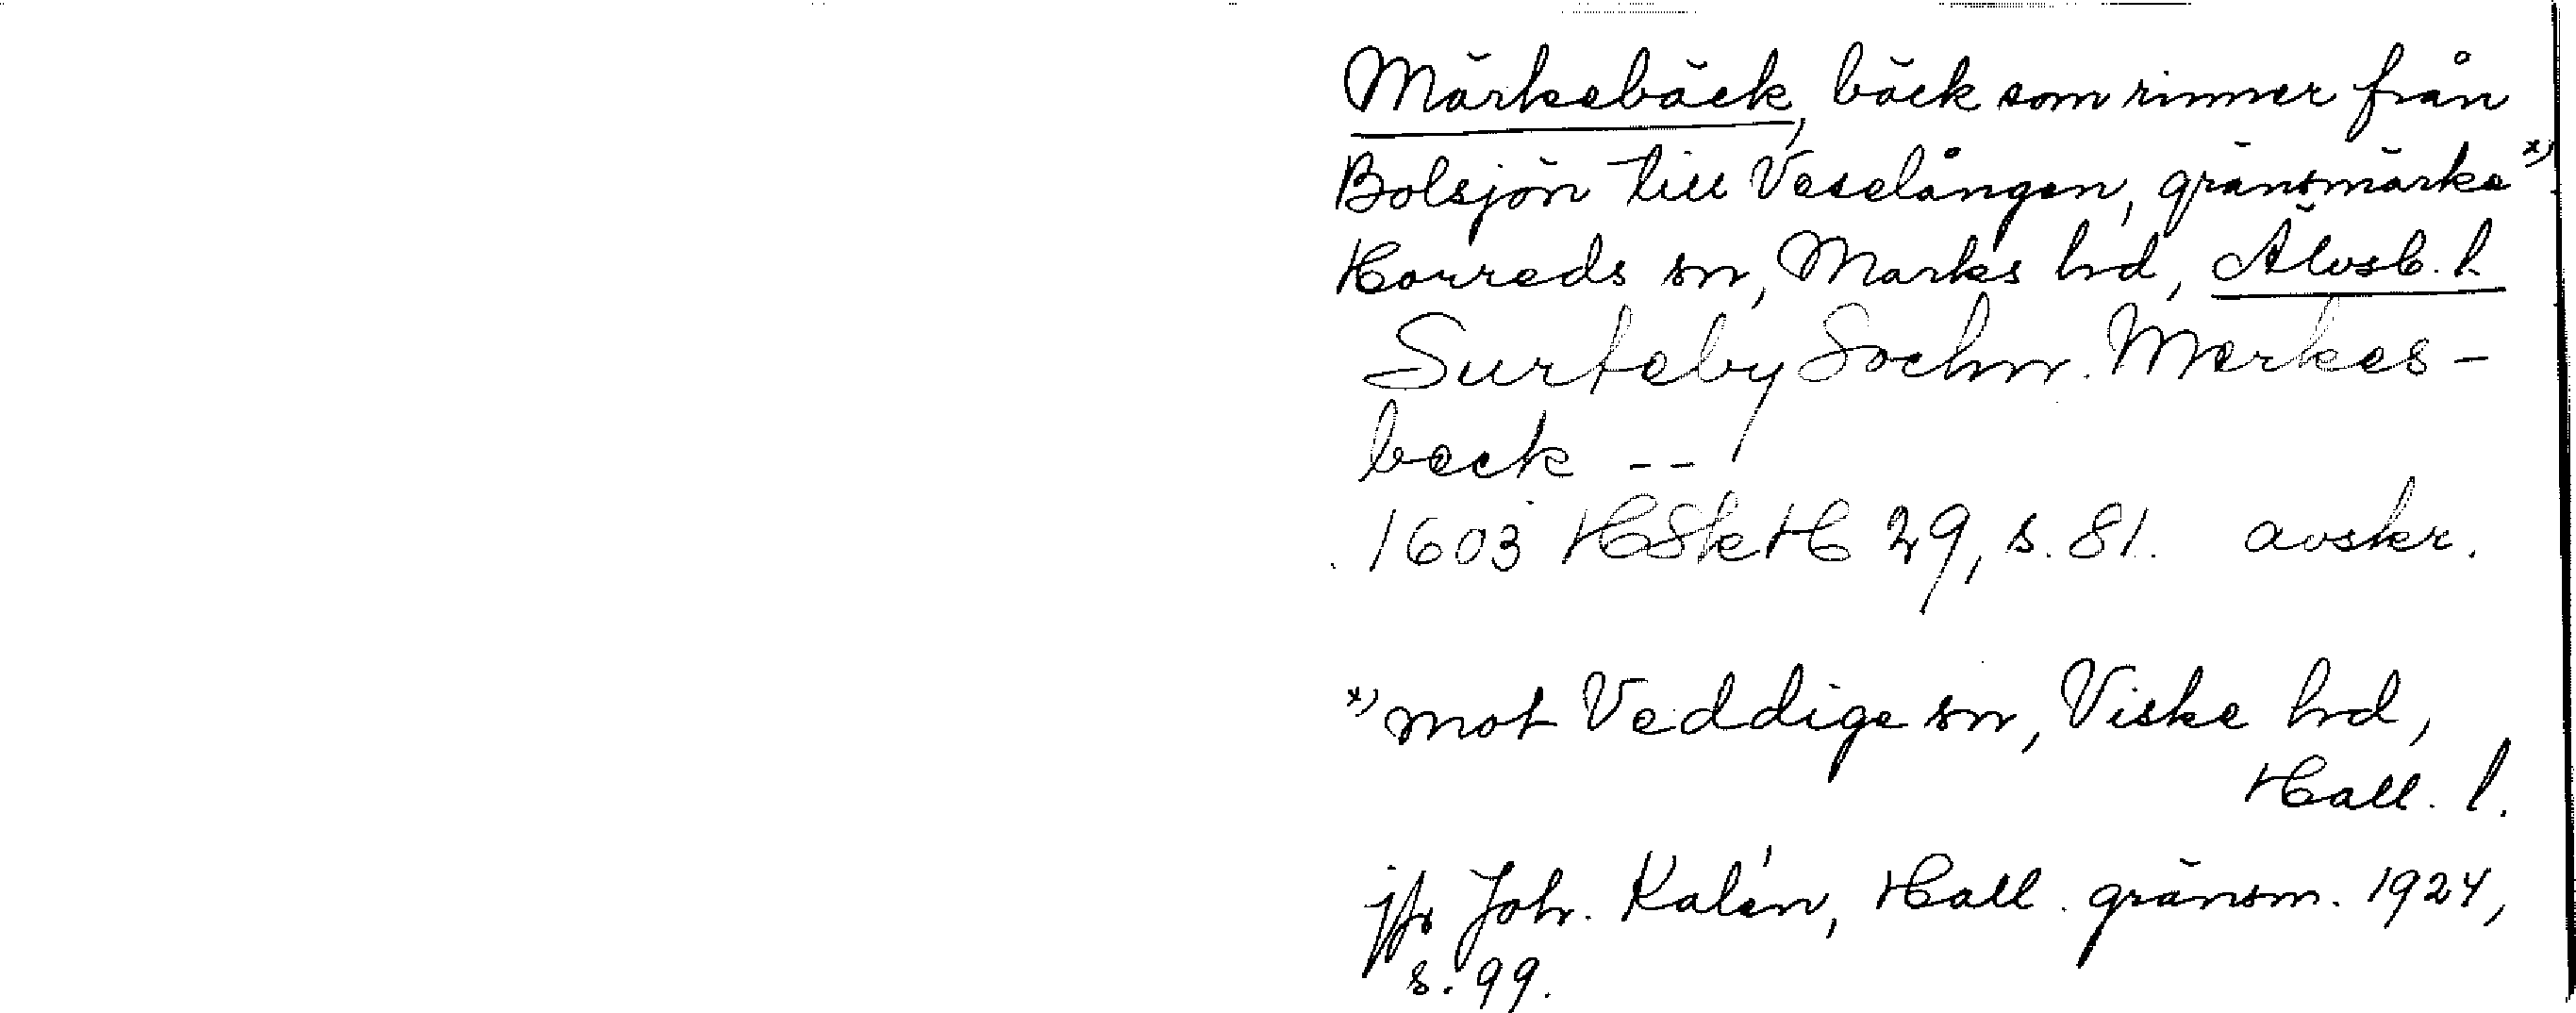 Märkebäck, bäck som rinner från
Bolsjön till Veselången, gränsmärke x)
Horreds sn, Marks hd, Älvsb. l.
Surteby Sochn. Merkes-
beck --
1603 HSkH 29, s. 81. avskr.
x) mot Veddige sn, Viske hd,
Hall. l.
jfr Joh. Kalén, Hall. gränsm. 1924,
s. 99.